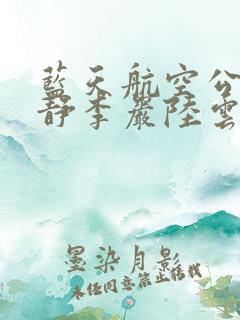 藍天航空公
靜李嚴陸雲
墨染月影
未經同意禁止轉載